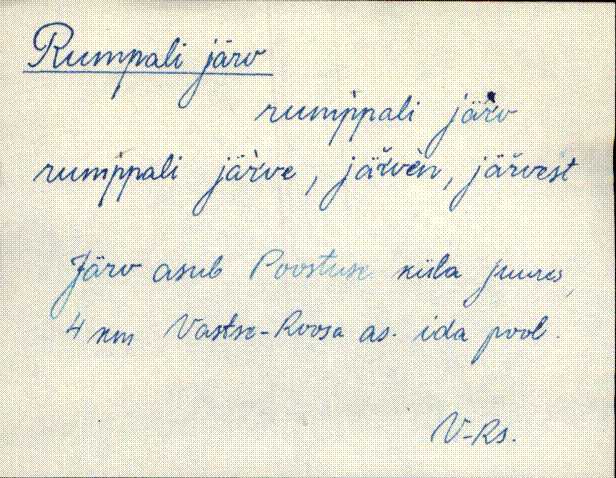 Rumpali järv
rumppali järv
rumppali järve, järvèn, järvest
Järv asub Poostuse küla juures,
4 km Vastse-Roosa as. ida pool.
V-Rs.